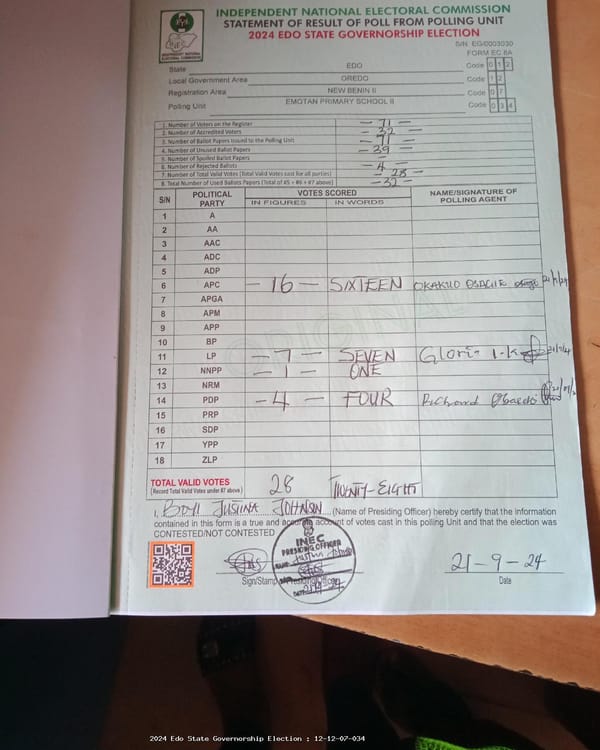 INDEPENDENT NATIONAL ELECTORAL COMMISSION
STATEMENT OF RESULT OF POLL FROM POLLING UNIT
2024 EDO STATE GOVERNORSHIP ELECTION
INEC
INDEPENDENT NATIONAL ELECTORAL COMMISSION
S/N: EG/0003030
FORM EC 8A
State EDO Code 0 1 2
Local Government Area OREDO Code 1 2
Registration Area NEW BENIN II Code 0 7
Polling Unit EMOTAN PRIMARY SCHOOL II Code 0 3 4
1. Number of Voters on the Register - 71 -
2. Number of Accredited Voters - 32 -
3. Number of Ballot Papers Issued to the Polling Unit - 71 -
4. Number of Unused Ballot Papers - 39 -
5. Number of Spoiled Ballot Papers -
6. Number of Rejected Ballots - 4 -
7. Number of Total Valid Votes (Total Valid Votes cast for all parties) - 28 -
8. Total Number of Used Ballots Papers (Total of #5 + #6 + #7 above) - 32 -
S/N POLITICAL PARTY VOTES SCORED NAME/SIGNATURE OF POLLING AGENT
IN FIGURES IN WORDS
1 A
2 AA
3 AAC
4 ADC
5 ADP
6 APC - 16 - SIXTEEN
7 APGA
8 APM
9 APP
10 BP
11 LP - 7 - SEVEN Gloria I.K
12 NNPP - 1 - ONE
13 NRM
14 PDP - 4 - FOUR Richard
15 PRP
16 SDP
17 YPP
18 ZLP
TOTAL VALID VOTES 28 TWENTY-EIGHT
(Record Total Valid Votes under #7 above)
I, JUSTINA JOHNSON (Name of Presiding Officer) hereby certify that the information
contained in this form is a true and accurate account of votes cast in this polling Unit and that the election was
CONTESTED/NOT CONTESTED
INEC
PRESIDING OFFICER
21-9-24
Sign/Stamp of Presiding Officer Date
2024 Edo State Governorship Election : 12-12-07-034